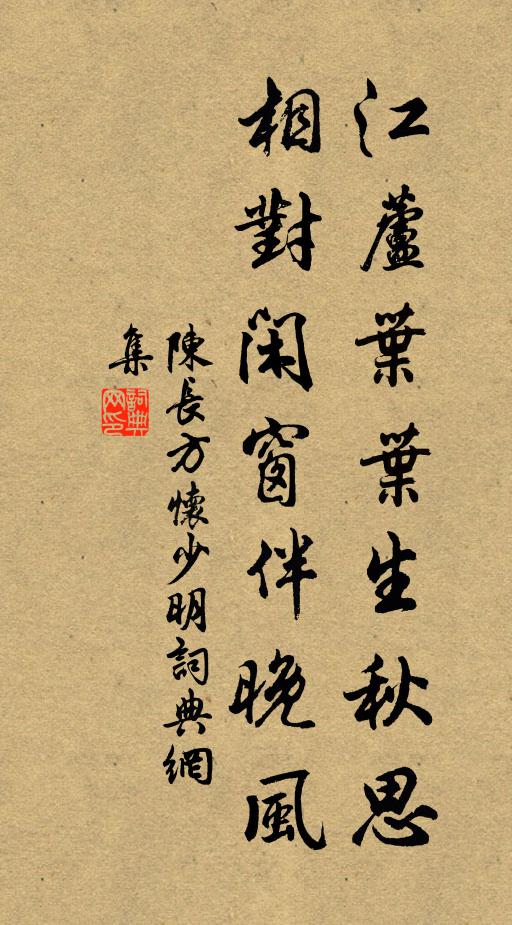 江蘆葉葉生秋思
相對閑窗伴晚風
陳長方懷少明詞典網
集
詞典網印